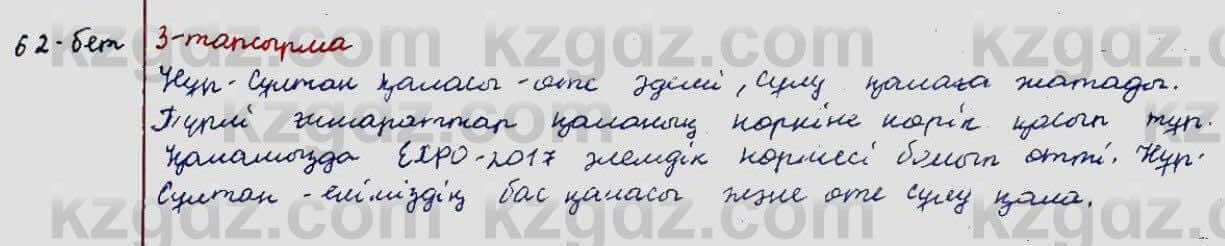 62-бет 3-тапсырма
Нұр-Сұлтан қаласы - өте әдемі, сұлу қалаға жатады.
Түрлі ғимараттар қаланың көркіне көрік қосып тұр.
Қаламызда EXPO-2017 әлемдік көрмесі болып өтті. Нұр-
Сұлтан - еліміздің бас қаласы және өте сұлу қала.
kzgdz.com kzgdz.com kzgdz.com